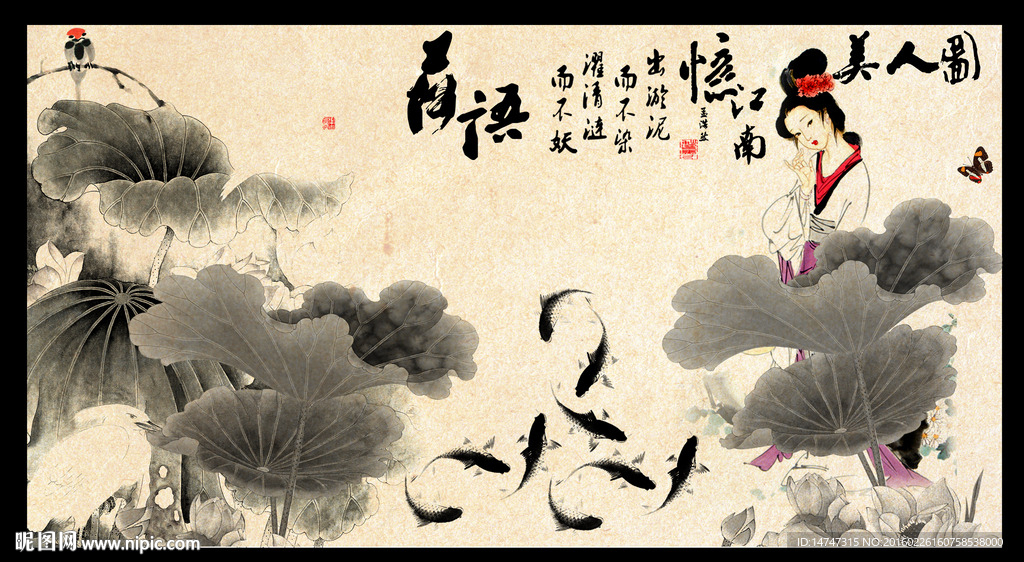 美人圖
憶江南
出淤泥
而不染
濯清涟
而不妖
荷語
昵图网 www.nipic.com
ID:14747315 NO:20160226160758538000